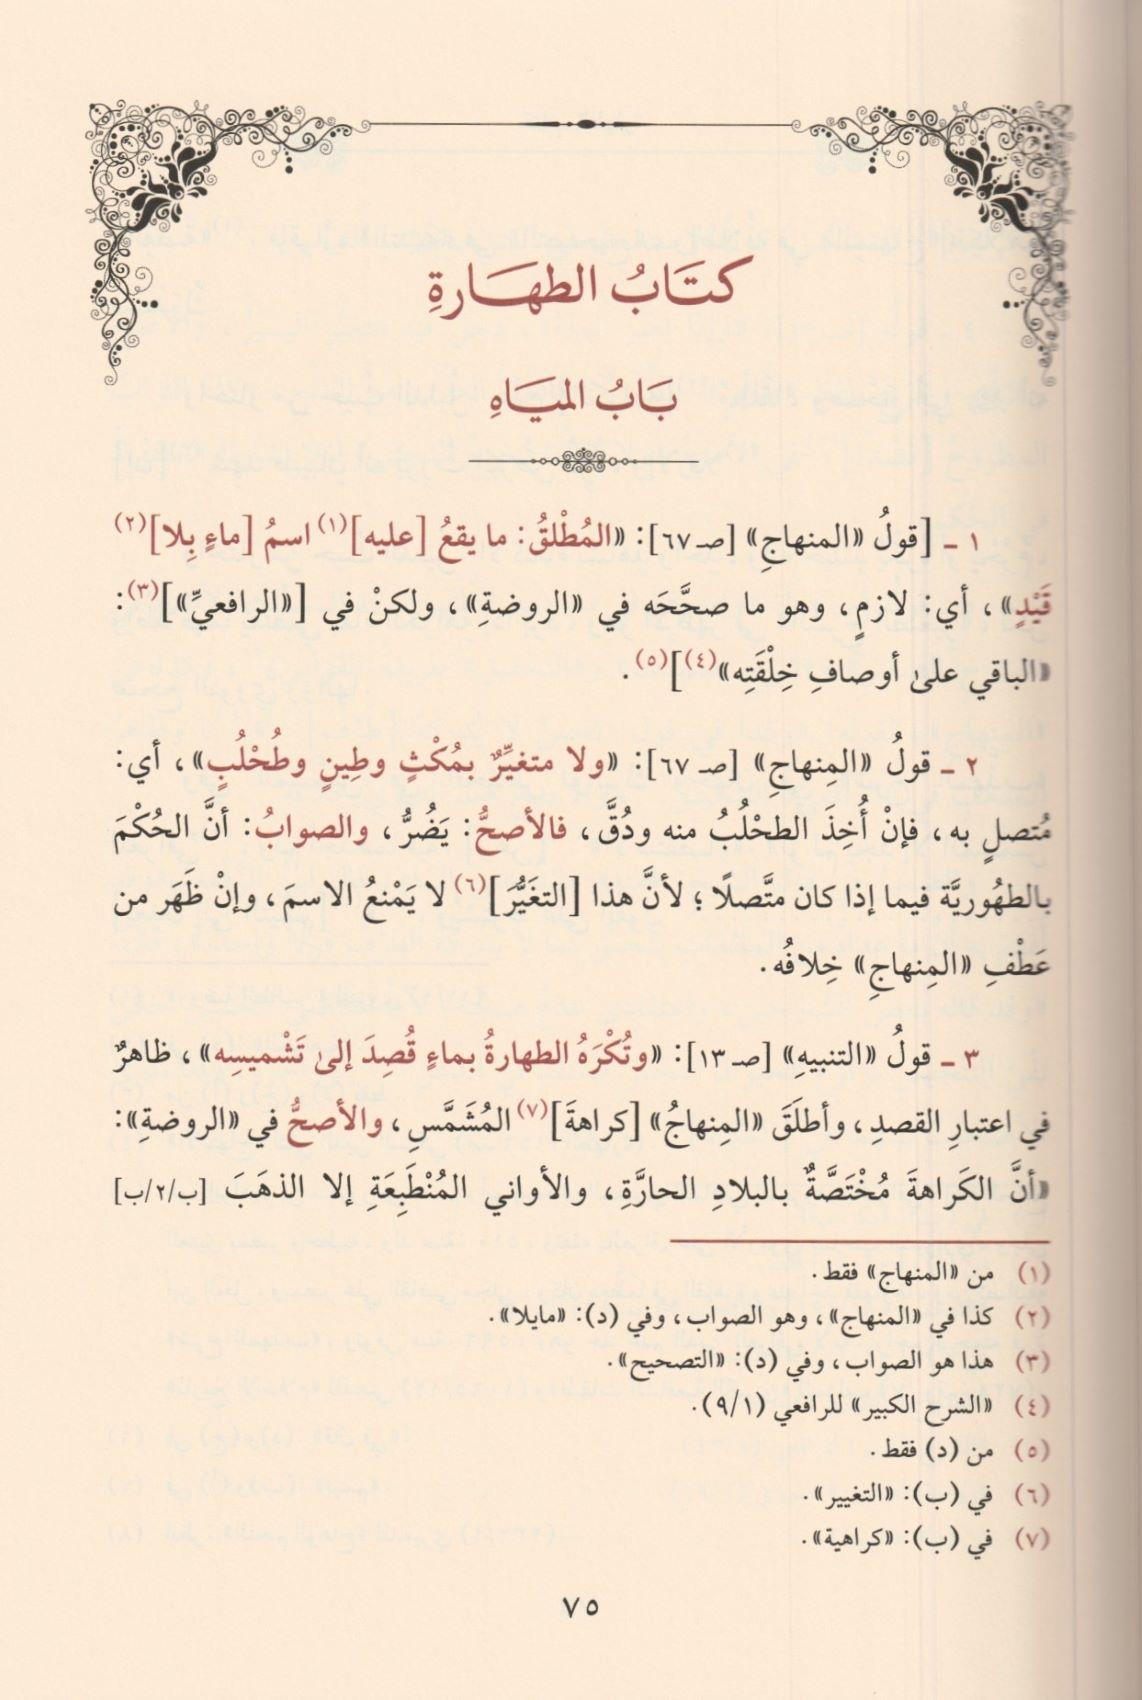 كتَابُ الطهَارةِ
بَابُ الميَاهِ
١ - [قولُ «المنهاجِ» [صـ ٦٧]: «المُطْلقُ: ما يقعُ [عليه](١) اسمُ [ماءٍ بِلا](٢)
قَيْدٍ»، أي: لازمٍ، وهو ما صحَّحَه في «الروضةِ»، ولكنْ في [«الرافعيِّ»](٣):
«الباقي على أوصافِ خِلْقَتِه»(٤)](٥).
٢ - قولُ «المِنهاجِ» [صـ ٦٧]: «ولا متغيِّرٌ بمُكْثٍ وطِينٍ وطُحْلُبٍ»، أي:
مُتصلٍ به، فإنْ أُخِذَ الطحْلُبُ منه ودُقَّ، فالأصحُّ: يَضُرُّ، والصوابُ: أنَّ الحُكْمَ
بالطهُوريَّة فيما إذا كان متَّصلًا؛ لأنَّ هذا [التغَيُّرَ](٦) لا يَمْنعُ الاسمَ، وإنْ ظَهَر من
عَطْفِ «المِنهاجِ» خِلافُه.
٣ - قولُ «التنبيهِ» [صـ ١٣]: «وتُكْرَهُ الطهارةُ بماءٍ قُصِدَ إلى تَشْميسِه»، ظاهرٌ
في اعتبارِ القصدِ، وأطلَقَ «المِنهاجُ» [كراهةَ](٧) المُشَمَّسِ، والأصحُّ في «الروضةِ»:
«أنَّ الكَراهةَ مُخْتَصَّةٌ بالبلادِ الحارَّةِ، والأواني المُنْطَبِعَةِ إلا الذهَبَ [ب/٢/ب]
(١) من «المنهاج» فقط.
(٢) كذا في «المنهاج»، وهو الصواب، وفي (د): «مايلا».
(٣) هذا هو الصواب، وفي (د): «التصحيح».
(٤) «الشرح الكبير» للرافعي (٩/١).
(٥) من (د) فقط.
(٦) في (ب): «التغيير».
(٧) في (ب): «كراهية».
٧٥